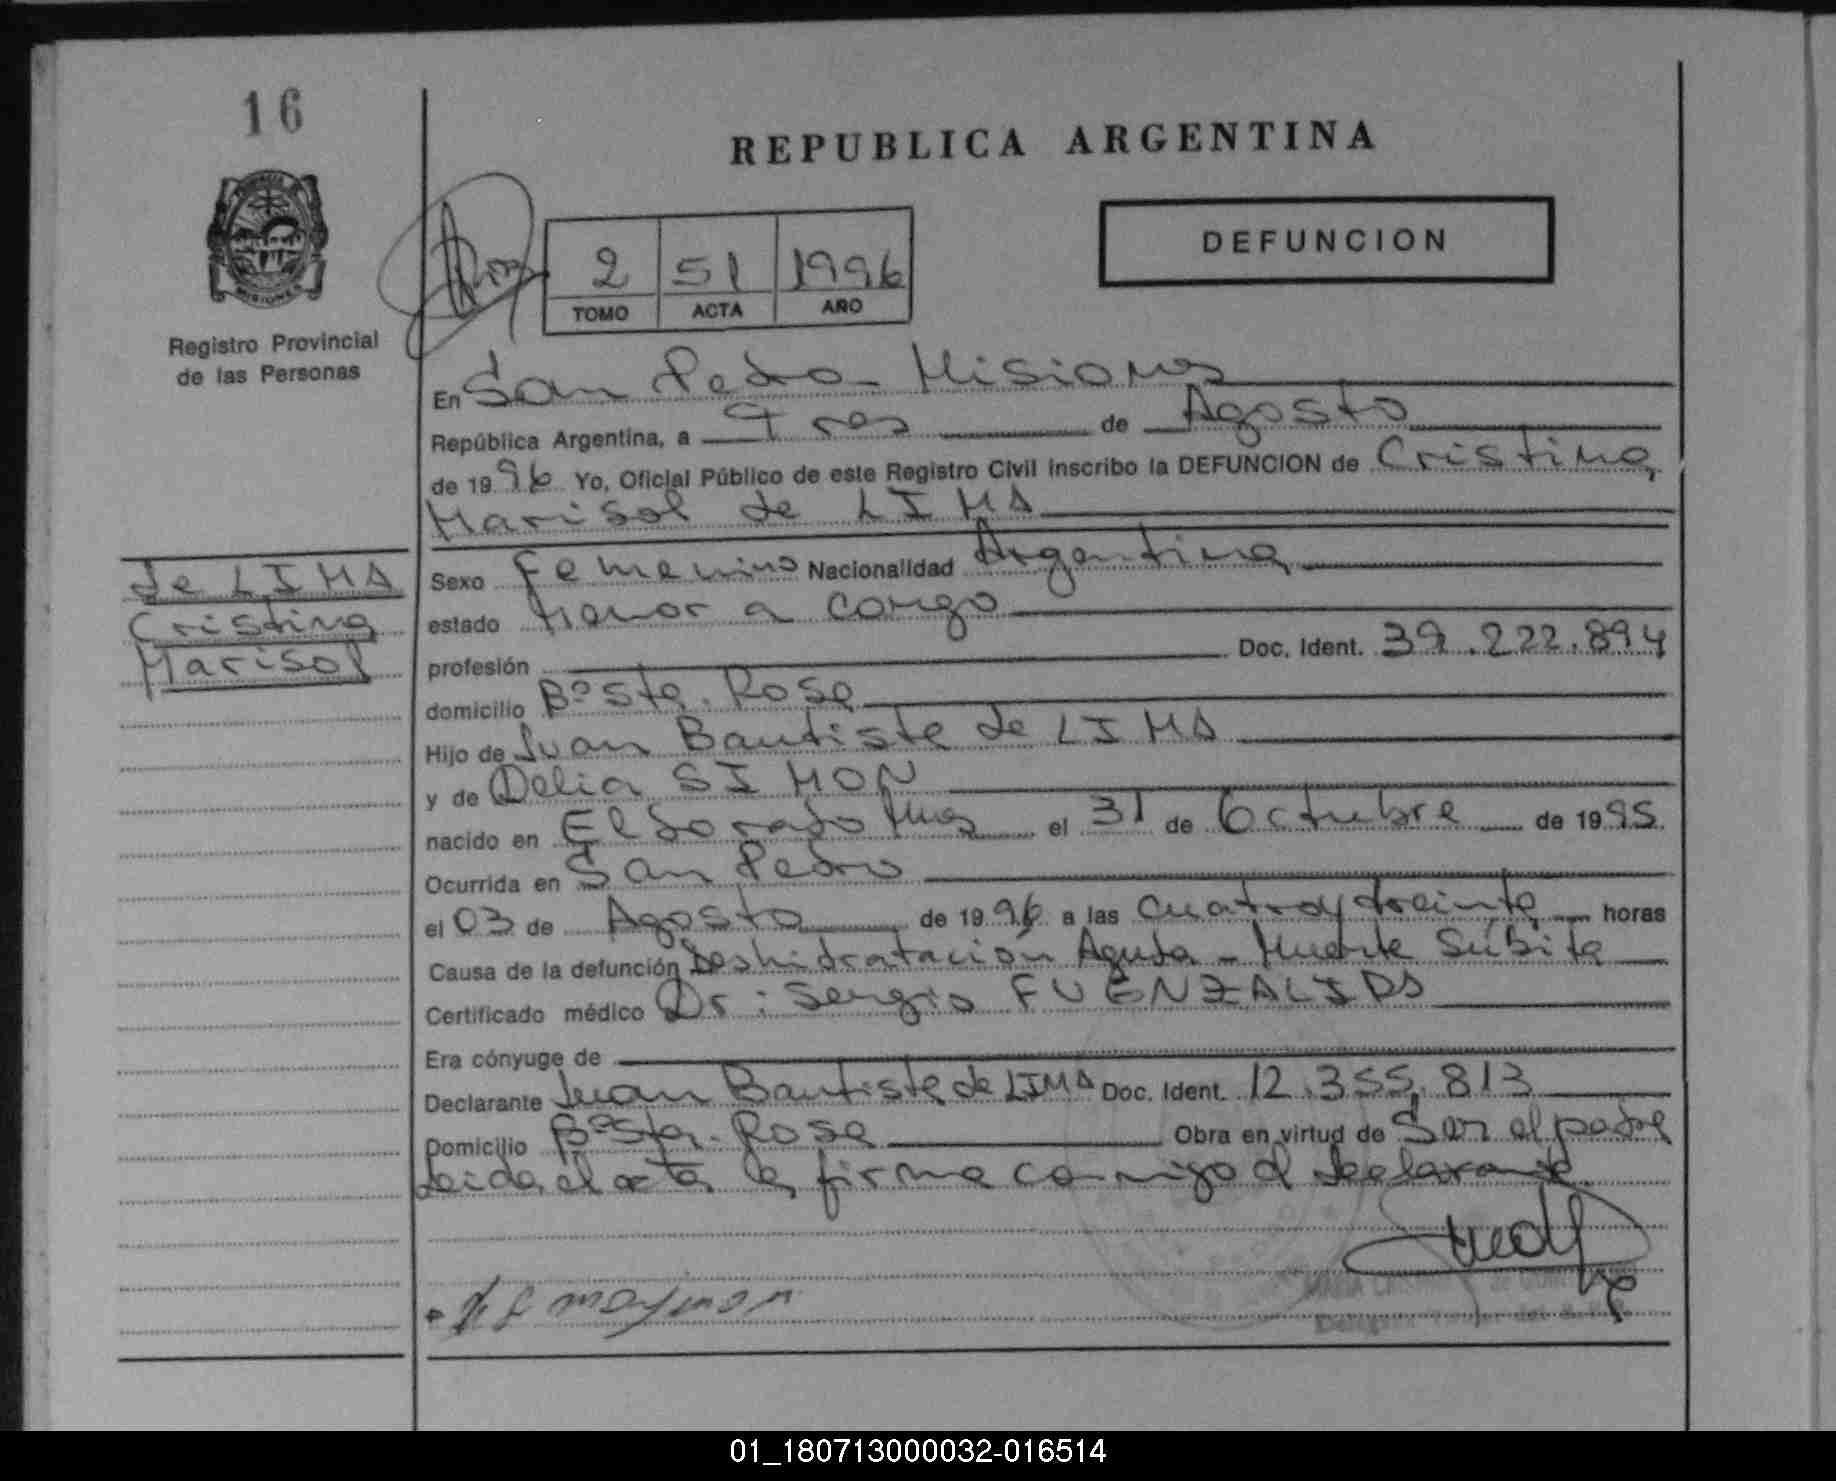 16
REPUBLICA ARGENTINA
PROVINCIA DE
MISIONES
Registro Provincial
de las Personas
2 51 1996
TOMO ACTA AÑO
DEFUNCION
En San Pedro Misiones
República Argentina, a Tres de Agosto
de 1996 Yo, Oficial Público de este Registro Civil inscribo la DEFUNCION de Cristina
Marisol de LIMA
de LIMA
Cristina
Marisol
Sexo Femenino Nacionalidad Argentina
estado Menor a cargo
profesión Doc. Ident. 39.222.894
domicilio Bº Sta. Rosa
Hijo de Juan Bautista de LIMA
y de Delia SIMON
nacido en Eldorado Mnes el 31 de Octubre de 1995
Ocurrida en San Pedro
el 03 de Agosto de 1996 a las cuatro y treinta horas
Causa de la defunción Deshidratación Aguda - Muerte Súbita
Certificado médico Dr: Sergio FUENZALIDA
Era cónyuge de
Declarante Juan Bautista de LIMA Doc. Ident. 12.355.813
Domicilio Bº Sta. Rosa Obra en virtud de Ser el padre
Leida el acta la firma conmigo el declarante.
01_180713000032-016514